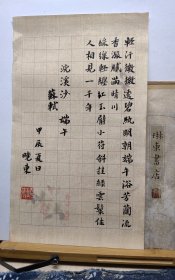 輕汗微微透碧紈明朝端午浴芳蘭流
香漲膩滿晴川
綵線輕纏紅玉臂小符斜挂綠雲鬟佳
人相見一千年
浣溪沙 端午
蘇軾
甲辰夏日
曉東
東書店